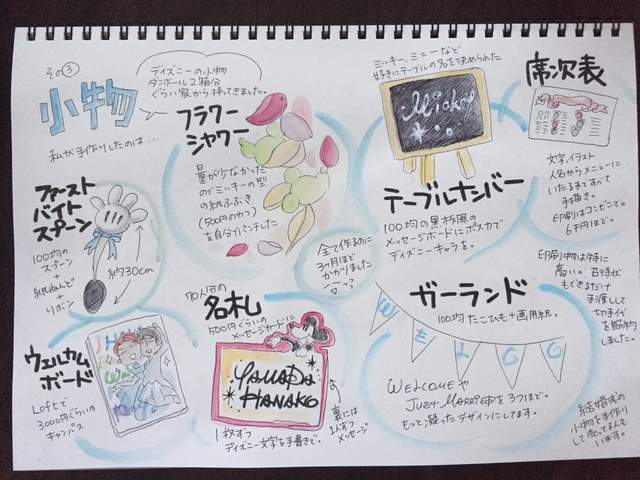 その③
小物
ディズニーの小物
ダンボール2箱分
ぐらい家から持ってきました。
私が手作りしたのは…
フラワー
シャワー
量が少なかった
のでミッキーの型
の紙ふぶき
(500円のやつ)
を自分でパンチした
ミッキー、ミニーなど
好きにテーブルの名を決められた
Mickey
テーブルナンバー
100均の黒板風の
メッセージボードにポスカで
ディズニーキャラを。
席次表
文字、イラスト
人名からメニューに
いたるまですべて
手描き。
印刷はコンビニで。
6千円ほど。
ファースト
バイト
スプーン
100均の
スプーン
+
紙ねんど
+
リボン
約30cm
全て作るのに
3ヶ月ほど
かかりました
ウェルカム
ボード
Loftで
3000円ぐらいの
キャンバス
70人分の
名札
500円ぐらいの
メッセージカードに
YAMADA
HANAKO
1枚ずつ
ディズニー文字を手書きで。
裏には
1人ずつ
メッセージ
ガーランド
100均たこひも+画用紙。
WELCO
WELCOMEや
JUST MARRIEDを3つほど。
もっと凝ったデザインにしてます。
印刷物は特に
高い。招待状
もできるだけ
手渡しして
切手代
を節約
しました。
結婚式の
小物を手作り
して売ってる人も
います。